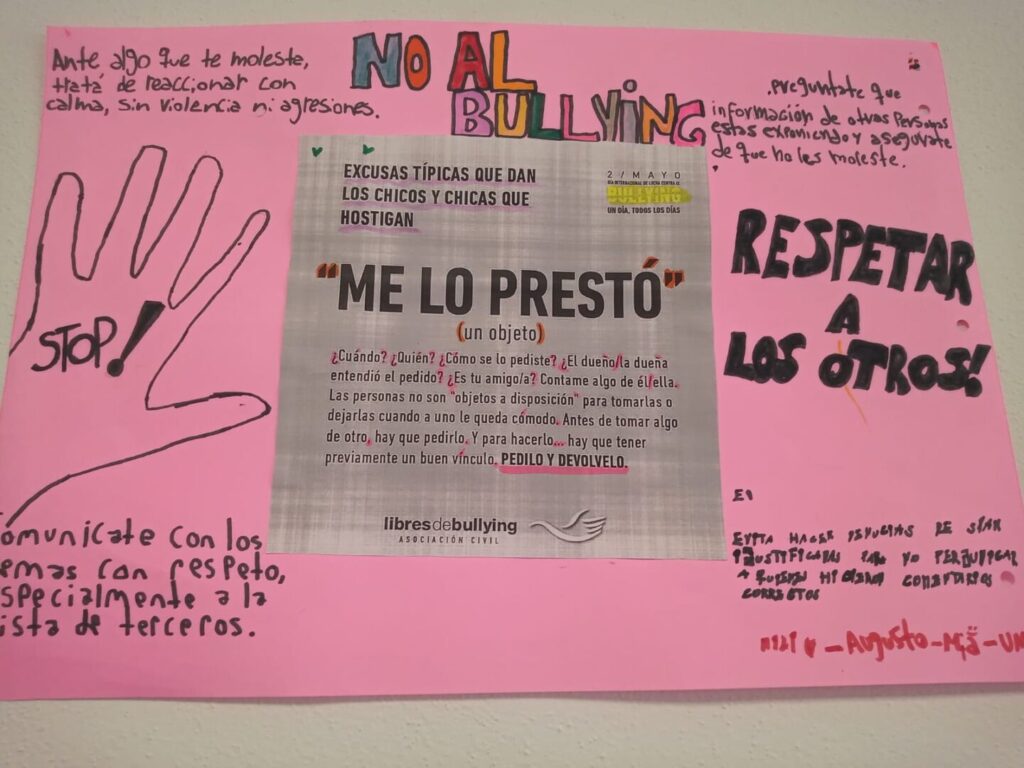 Ante algo que te moleste,
tratá de reaccionar con
calma, sin violencia ni agresiones.
NO AL
BULLYING
.preguntate que
información de otras personas
estas exponiendo y asegurate
de que no les moleste.
STOP!
EXCUSAS TÍPICAS QUE DAN
LOS CHICOS Y CHICAS QUE
HOSTIGAN
2/MAYO
DÍA INTERNACIONAL DE LUCHA CONTRA EL
BULLYING
UN DÍA, TODOS LOS DÍAS
"ME LO PRESTÓ"
(un objeto)
¿Cuándo? ¿Quién? ¿Cómo se lo pediste? ¿El dueño/la dueña
entendió el pedido? ¿Es tu amigo/a? Contame algo de él/ella.
Las personas no son "objetos a disposición" para tomarlas o
dejarlas cuando a uno le queda cómodo. Antes de tomar algo
de otro, hay que pedirlo. Y para hacerlo... hay que tener
previamente un buen vínculo. PEDILO Y DEVOLVELO.
libresdebullying
ASOCIACIÓN CIVIL
RESPETAR
A
LOS OTROS!
omunícate con los
emas con respeto,
specialmente a la
ista de terceros.
EVITA HACER DE
JUSTIFICADAS NO PERJUDICAR
A COMENTARIOS
CORRECTOS
-Augusto-